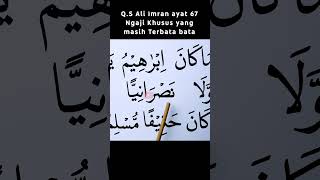 Q.S Ali imran ayat 67
Ngaji Khusus yang
masih Terbata bata
مَاكَانَ اِبْرٰهِيْمُ
وَّلَا نَصْرَانِيًّا
كَانَ حَنِيْفًا مُّسْلِمً